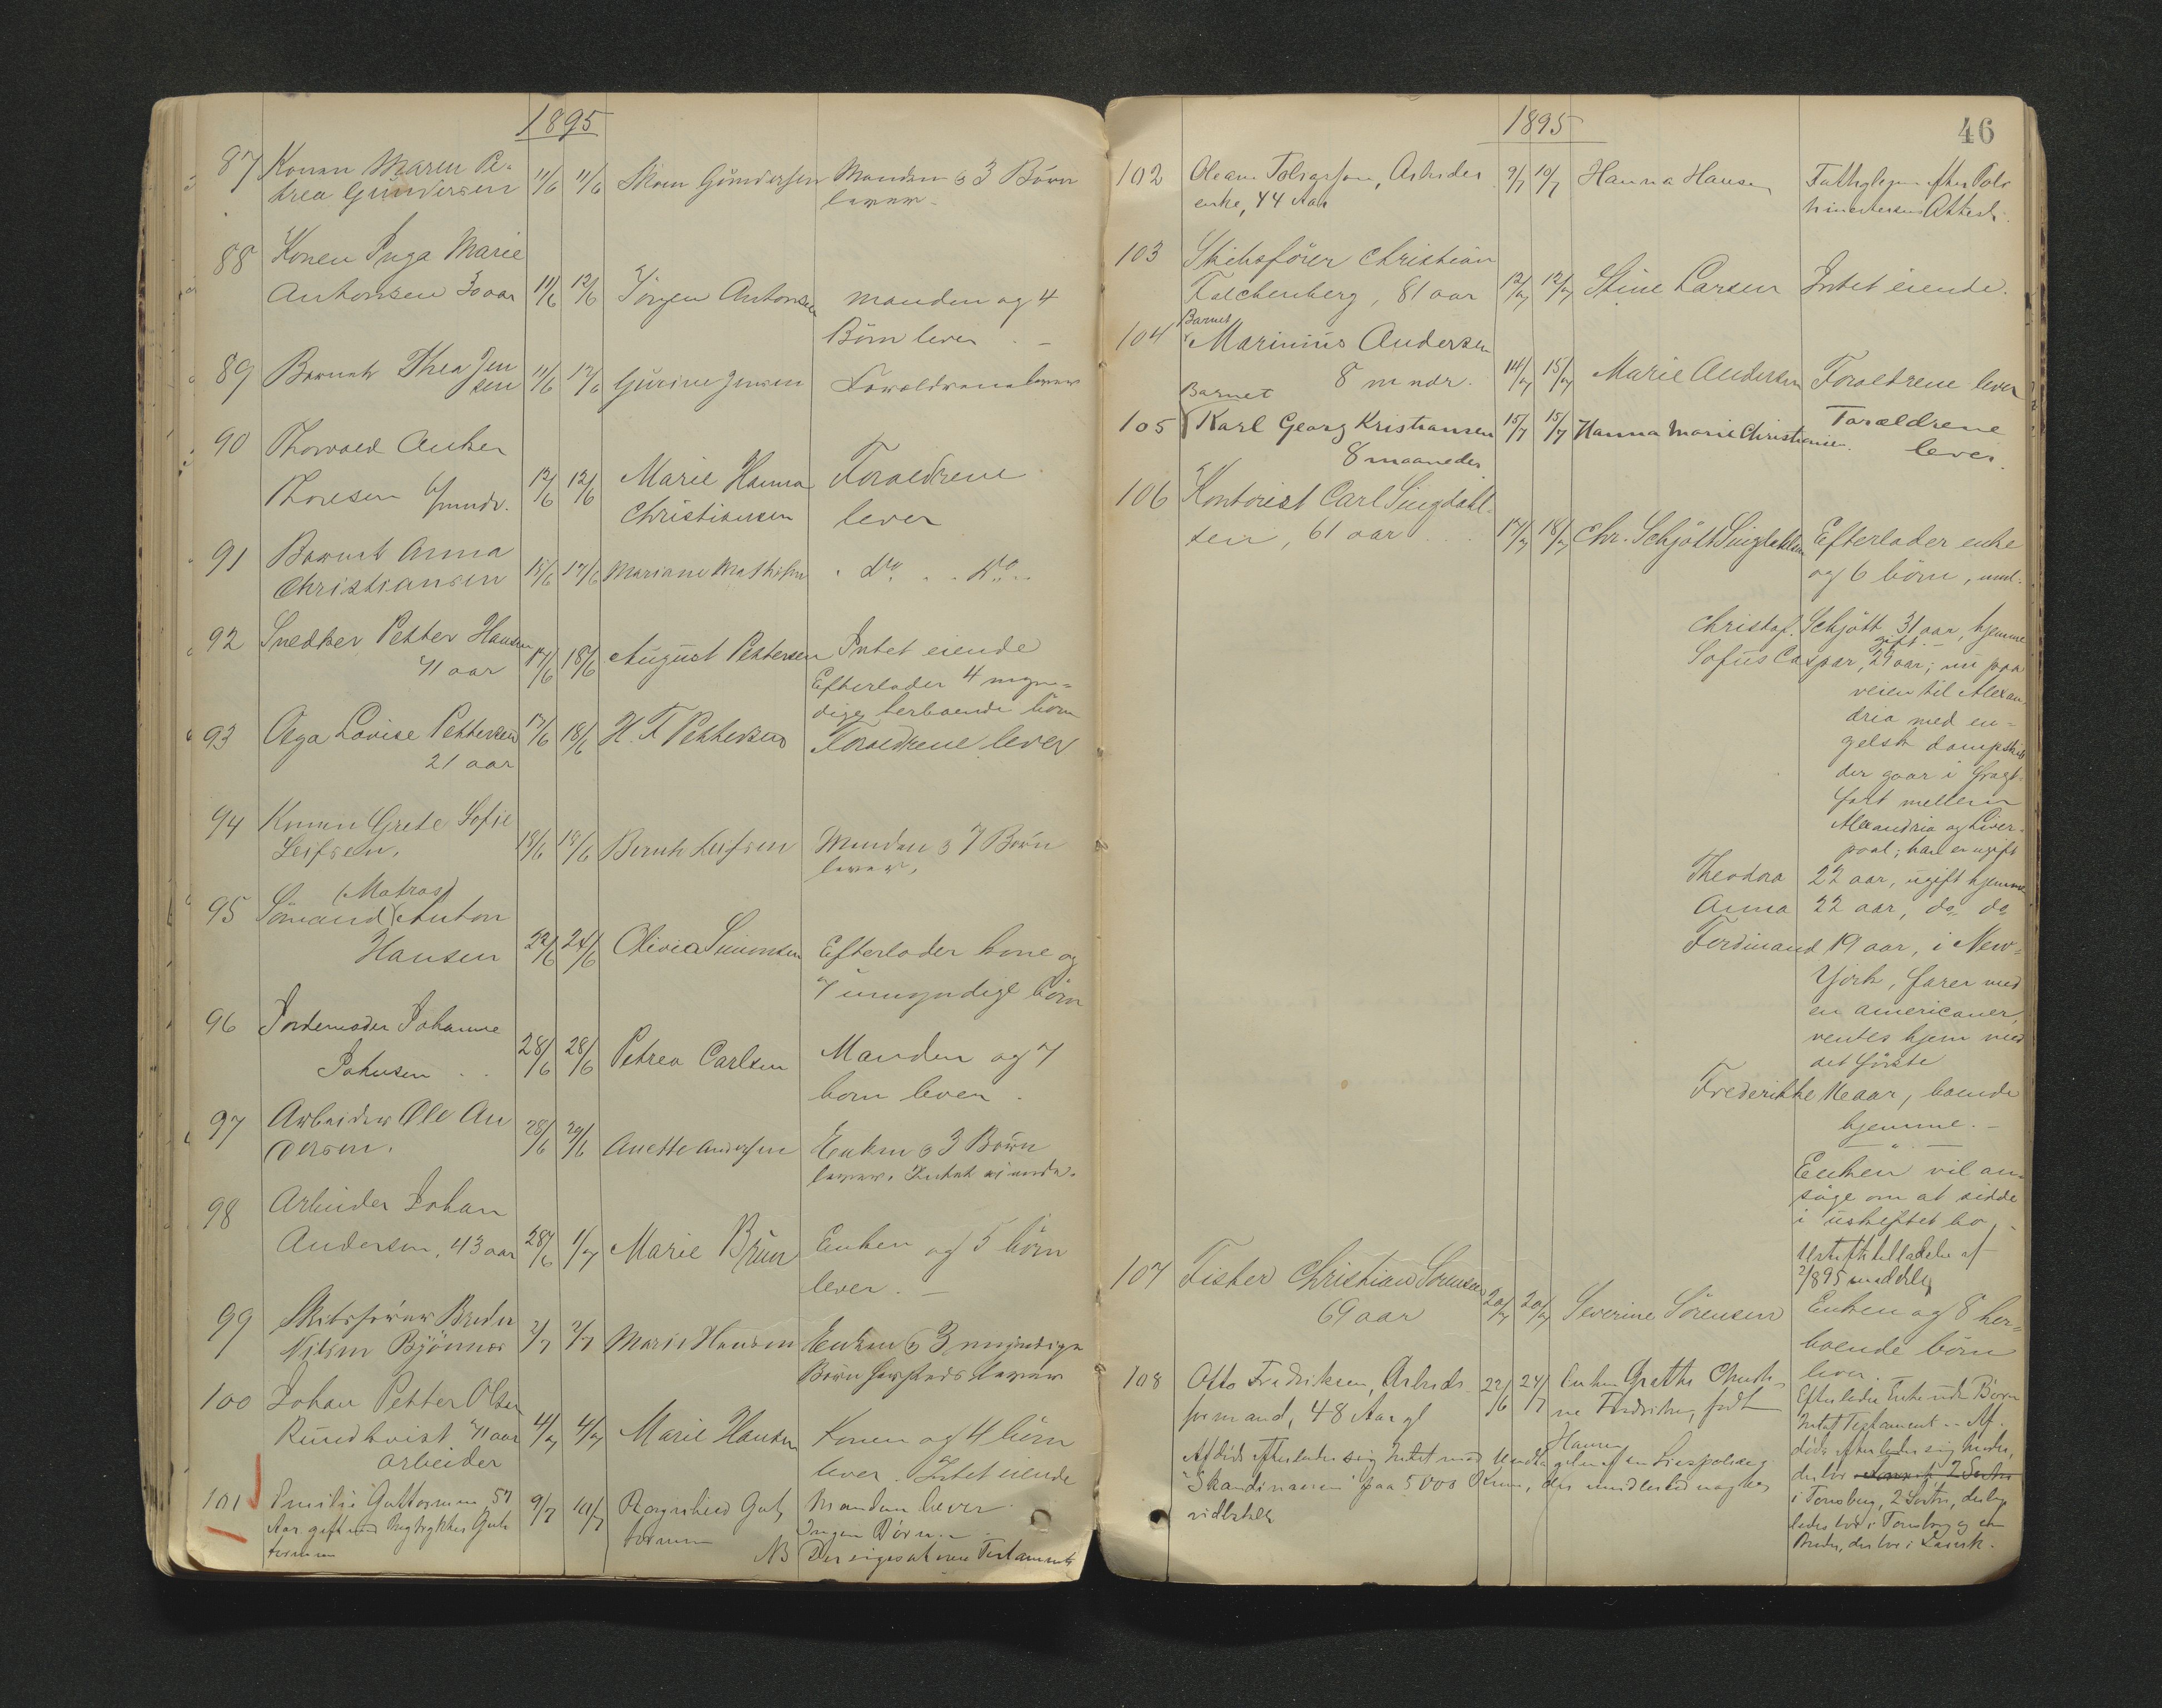 1895
87 Konen Maren Pe-
trea Gundersen 11/6 11/6 Gundersen Manden & 3 Börn
lever
88 Konen Inga Marie
Antonsen 30 aar 11/6 12/6 Jörgen Antonsen manden og 4
Börn lever
89 Barnet Thea Jen
sen 11/6 12/6 Gurine Jensen Forældrene lever
90 Thorvald Anker
Thoresen 6/ mndr. 12/6 12/6 Marie Hanna Foraeldrene
Christiansen lever
91 Barnet Anna
Christiansen 15/6 17/6 Mariane Mathisen " do " " do "
92 Snedker Petter Hansen
71 aar 17/6 18/6 August Pettersen Intet eiende
Efterlader 4 myn-
dige herboende börn
93 Olga Lovise Pettersen 17/6 18/6 H. F. Pettersen Foraeldrene lever
21 aar
94 Konen Grete Sofie
Leifsen. 18/6 19/6 Bernt Leifsen Manden & 7 Börn
lever.
95 Sömand (Matros) Anton
Hansen 22/6 24/6 Olivia Simonsen Efterlader kone og
7 umyndige börn
96 Jordemoder Johanne
Johnsen 28/6 28/6 Petrea Carlsen Manden og 7
born lever.
97 Arbeider Ole An
dersen. 28/6 29/6 Anette Andersen Enken & 3 Börn
lever. Intet eiende.
98 Arbeider Johan
Andersen, 43 aar 28/6 1/7 Marie Bruun Enken og 5 börn
lever. -
99 Skibsförer Breder
Nilsen Bjönnes 2/7 2/7 Marie Hansen Enken & 3 myndige
Börn lever
100 Johan Petter Olsen
Rundkvist 71 aar 4/7 4/7 Marie Hansen Konen og 4 börn
arbeider lever. Intet eiende
101 Emilie Guttormsen 57 9/7 10/7 Ragnhild Gut Manden lever
Aar gift med Bogtrykker Gut tormsen Ingen Börn
tormsen NB Der siges at være Testamente
1895
46
102 Oleane Arbeider 9/7 10/7 Hanna Hansen Fattiglegen efter Poli
enke, 44 Aar Attest.
103 Skibsförer Christian
Falchenberg, 81 aar 12/7 12/7 Stine Larsen Intet eiende.
104 Barnet
Marinius Andersen
8 mndr. 14/7 15/7 Marie Andersen Foraeldrene lever
105 Barnet
Karl Georg Kristiansen 15/7 15/7 Hanna Marie Christiansen. Forældrene
8 maaneder lever.
106 Kontorist Carl Lingdahl-
sen, 61 aar 17/7 18/7 Chr. Schjött Lingdahlsen Efterlader enke
og 6 börn, nml.
Christof. Schjött 31 aar, hjemme
gift. -
Sofus Caspar, 29 aar, nu paa
veien til Alexan-
dria med en-
gelsk dampskib
der gaar i fragt-
fart mellem
Alexandria og Liver-
pool; han er ugift
Theodora 22 aar, ugift hjemme
Anna 22 aar, do do
Ferdinand 19 aar, i New-
York, farer med
en americaner,
ventes hjem med
det förste
Frederikke 16 aar, boende
hjemme. -
- " -
Enken vil an-
söge om at sidde
i uskiftet bo. -
Uskiftetilladelse af
2/8 95 meddelt
107 Fisker Christian Sörensen
69 aar 20/7 20/7 Severine Sörensen Enken og 8 her-
boende börn
lever.
108 Otto Fredriksen, Arbeids 22/6 24/7 Enken Grethe
formand, 48 Aar gl ne Fredriksen, født Hansen
Efterlader Enke uden Börn
Intet Testament. - Af-
døde efterlader sig Moder,
der bor
i Tønsberg, 2 Søstre, der lige
ledes bor i Tønsberg og en
Broder, der bor i Larvik.
Afdöde efterlader sig Intet med Undtagelse af en Livspolice i
"Skandinavien" paa 5000 Kroner, der imidlertid